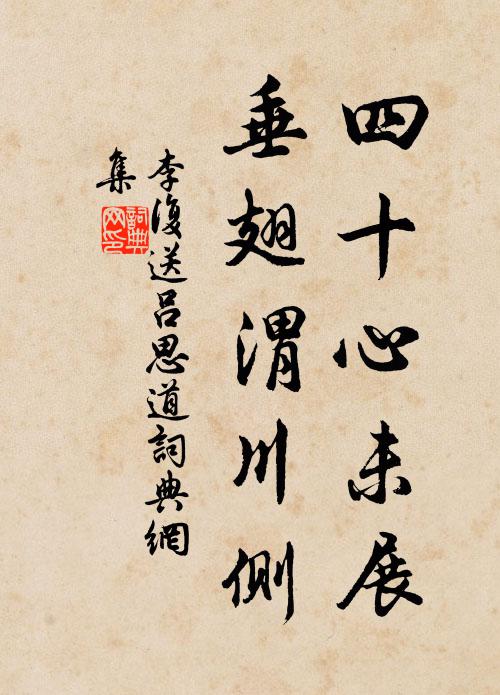 四十心未展
垂翅渭川側
李復送呂思道詞典網
集
詞典網印